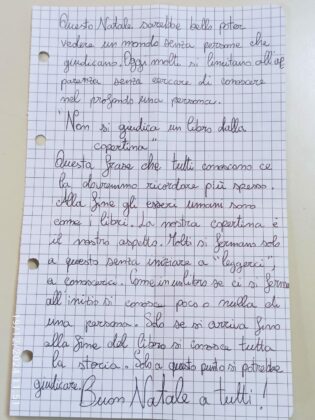 Questo Natale sarebbe bello poter
vedere un mondo senza persone che
giudicano. Oggi molti si limitano all'ap
parenza senza cercare di conoscere
nel profondo una persona.
"Non si giudica un libro dalla
copertina"
Questa frase che tutti conoscono ce
la dovremmo ricordare più spesso.
Alla fine gli esseri umani sono
come libri. La nostra copertina è
il nostro aspetto. Molti si fermano solo
a questo senza iniziare a "leggerci",
a conoscerci. Come in un libro se ci si ferma
all'inizio si conosce poco o nulla di
una persona. Solo se si arriva fino
alla fine del libro si conosce tutta
la storia. Solo a questo punto si potrebbe
giudicare. Buon Natale a tutti!